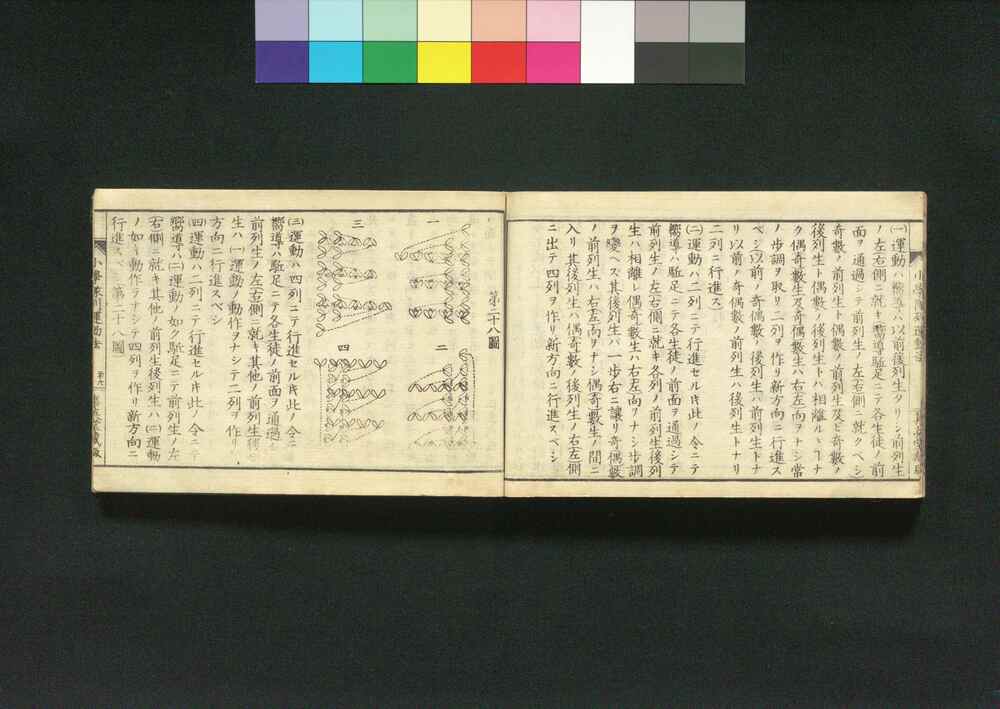 ㈠運動ハ嚮導ハ以前後列生タリシ前列生
ノ左右側ニ就キ嚮導駈足ニテ各生徒ノ前
面ヲ通過シテ前列生ノ左右側ニ就クベシ
奇數ノ前列生ト偶數ノ前列生及ビ奇數ノ
後列生ト偶數ノ後列生トハ相離ルヽヿナ
ク偶奇數生及奇偶數生ハ右左向ヲナシ常
ノ步調ヲ取リ二列ヲ作リ新方向ニ行進ス
ベシ以前ノ奇偶數ノ後列生ハ前列生トナ
リ以前ノ奇偶數ノ前列生ハ後列生トナリ
二列ニ行進ス
㈡運動ハ二列ニテ行進セルキ此ノ令ニテ
嚮導ハ駈足ニテ各生徒ノ前面ヲ通過シテ
前列生ノ左右側ニ就キ各列ノ前列生後列
生ハ相離レ偶奇數生ハ右左向ヲナシ步調
ヲ變ヘズ其後列生ハ一步右ニ讓リ奇偶數
ノ前列生ハ右左向ヲナシ偶奇數生ノ間ニ
入リ其後列生ハ偶奇數ノ後列生ノ右左側
ニ出テ四列ヲ作リ新方向ニ行進スベシ
第二十八圖
一
二
三
四
㈢運動ハ四列ニテ行進セルキ此ノ令ニテ
嚮導ハ駈足ニテ各生徒ノ前面ヲ通過シ
前列生ノ左右側ニ就キ其他ノ前列生後列
生ハ㈠運動ノ動作ヲナシテ二列ヲ作リ
方向ニ行進スベシ
㈣運動ハ二列ニテ行進セルキ此ノ令ニテ
嚮導ハ㈡運動ノ如ク駈足ニテ前列生ノ左
右側ニ就キ其他ノ前列生後列生ハ㈡運動
ノ如キ動作ヲナシテ四列ヲ作リ新方向ニ
行進スベシ第二十八圖